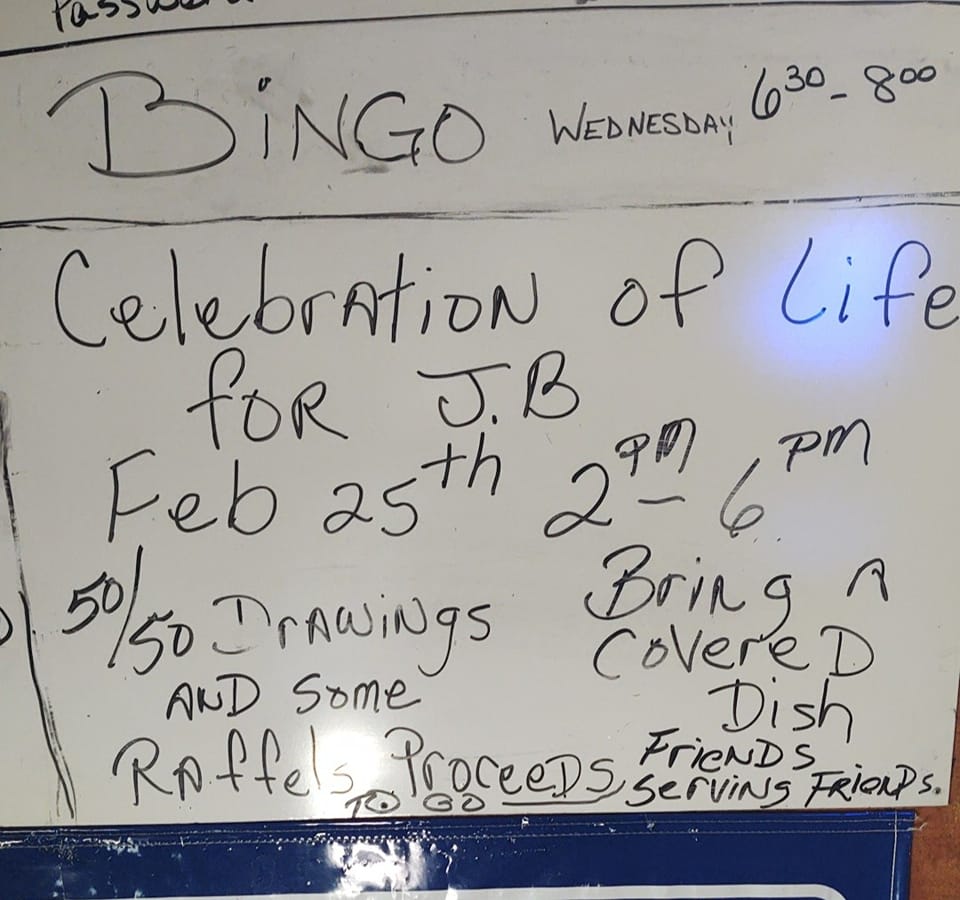 Password
BiNGO WEDNESDAY 6 30 - 8 00
Celebration of Life
for J.B
Feb 25th 2 PM - 6 PM
50/50 Drawings
AND Some
Raffels Proceeds
TO GO
Bring A
Covered
Dish
Friends
Serving Friends.